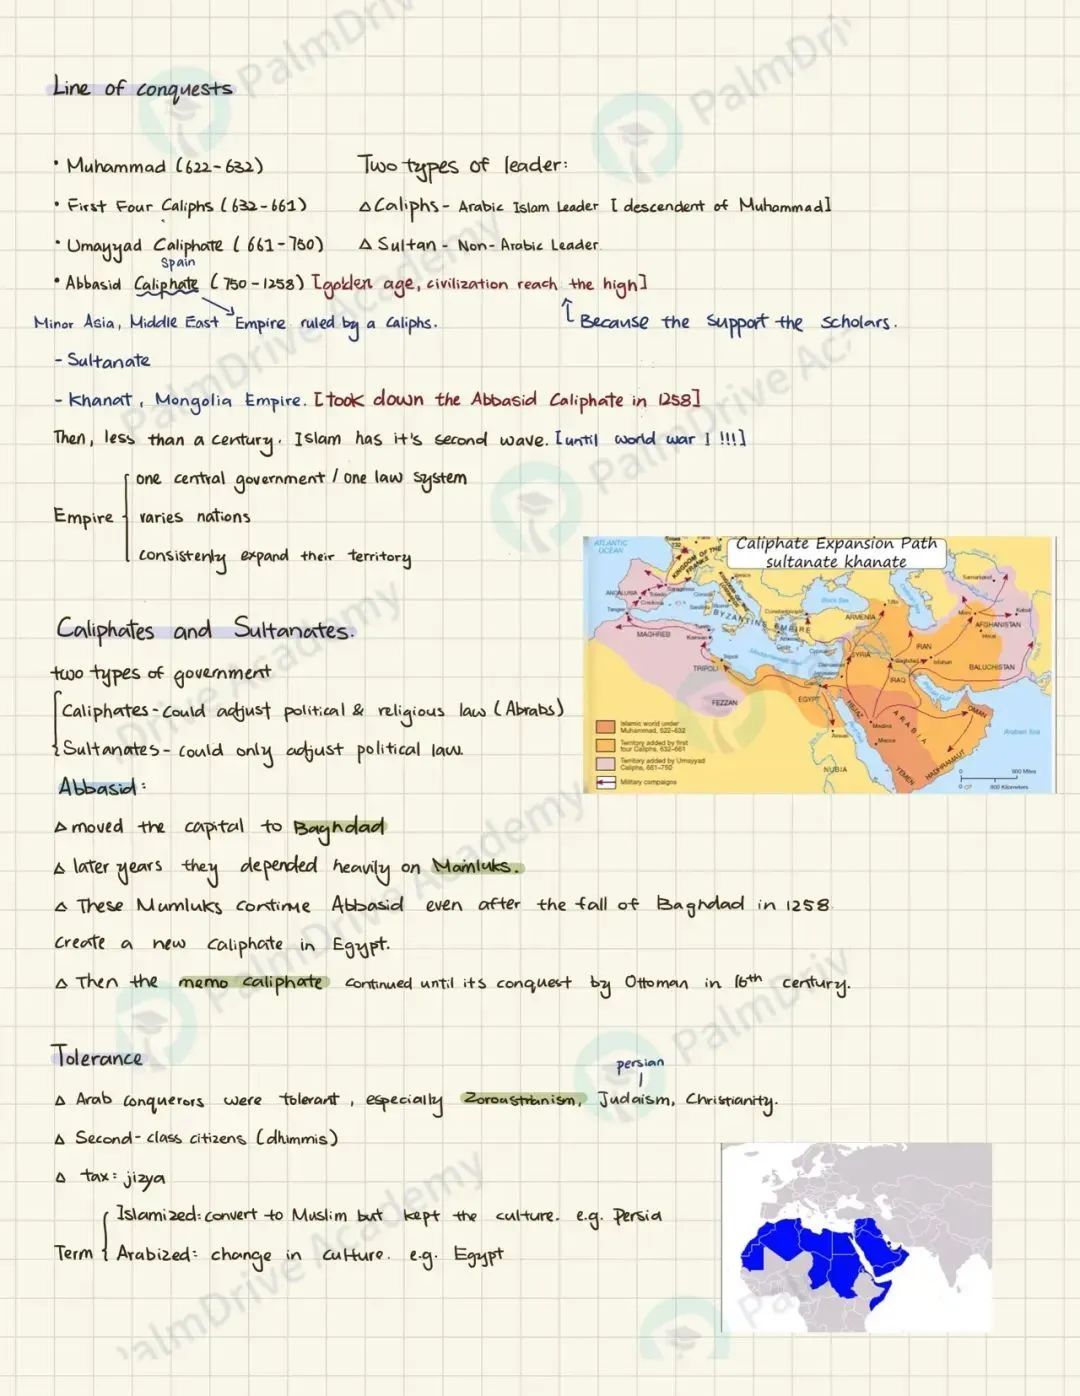 Line of conquests
• Muhammad (622-632)
Two types of leader:
• First Four Caliphs (632-661)
△ Caliphs - Arabic Islam Leader [descendent of Muhammad]
• Umayyad Caliphate (661-750)
△ Sultan - Non-Arabic Leader.
Spain
• Abbasid Caliphate (750-1258) [golden age, civilization reach the high]
Minor Asia, Middle East Empire ruled by a Caliphs.
Because the support the scholars.
- Sultanate
- Khanat, Mongolia Empire. [took down the Abbasid Caliphate in 1258]
Then, less than a century. Islam has it's second wave. [until world war I !!!]
one central government / one law system
Empire varies nations
consistenly expand their territory
Caliphate Expansion Path
sultanate khanate
ATLANTIC
OCEAN
Tours
732
KINGDOM OF THE
FRANKS
ANDALUSIA
Toledo
Cordoba
Tangier
MAGHREB
BYZANTINE EMPIRE
Constantinople
Black Sea
ARMENIA
Tiflis
Samarkand
Kabul
AFGHANISTAN
Herat
IRAN
Isfahan
BALUCHISTAN
SYRIA
Baghdad
IRAQ
Mediterranean Sea
Tripoli
TRIPOLI
FEZZAN
EGYPT
HEJAZ
Medina
Mecca
ARABIA
OMAN
Arabian Sea
NUBIA
YEMEN
HADHRAMAUT
Islamic world under
Muhammad, 622-632
Territory added by first
four Caliphs, 632-661
Territory added by Umayyad
Caliphs, 661-750
Military campaigns
0 500 Miles
0 800 Kilometers
Caliphates and Sultanates.
two types of government
Caliphates - could adjust political & religious law (Abrabs)
Sultanates - could only adjust political law.
Abbasid:
△ moved the capital to Baghdad
△ later years they depended heavily on Mamluks.
△ These Mumluks continue Abbasid even after the fall of Baghdad in 1258.
Create a new caliphate in Egypt.
△ Then the memo caliphate continued until its conquest by Ottoman in 16th century.
Tolerance
persian
△ Arab conquerors were tolerant, especially Zoroastrianism, Judaism, Christianity.
△ Second-class citizens (dhimmis)
△ tax: jizya
Islamized: convert to Muslim but kept the culture. e.g. Persia
Term Arabized: change in culture. e.g. Egypt
PalmDrive Academy